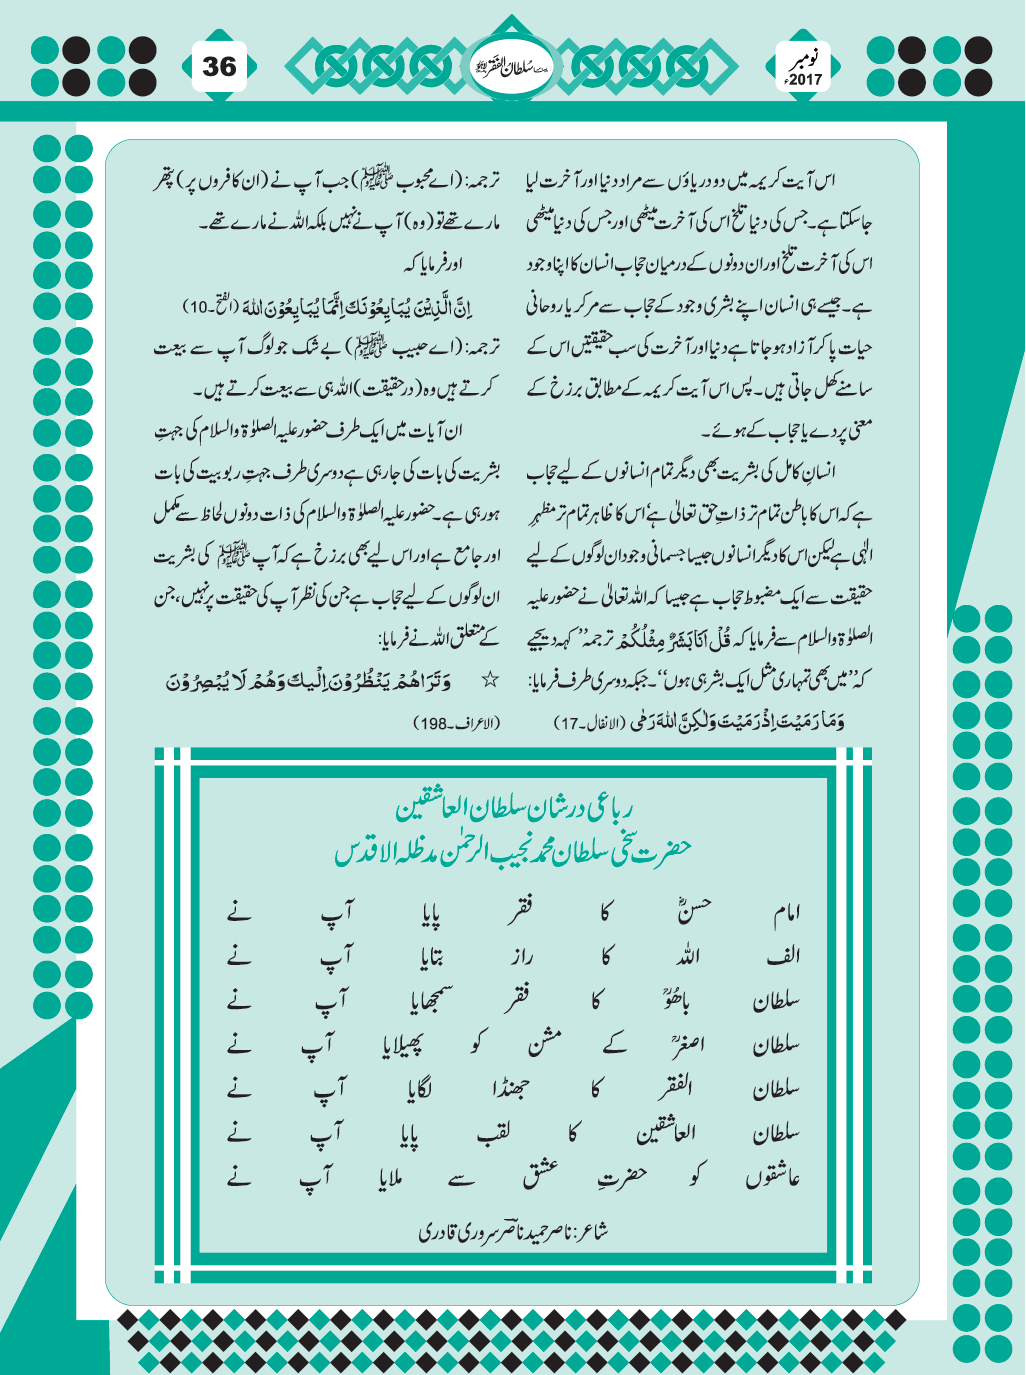 36
ماہنامہ سلطان الفقر لاہور
نومبر
2017ء
اس آیت کریمہ میں دو دریاؤں سے مراد دنیا اور آخرت لیا
جاسکتا ہے۔ جس کی دنیا تلخ اس کی آخرت میٹھی اور جس کی دنیا میٹھی
اس کی آخرت تلخ اور ان دونوں کے درمیان حجاب انسان کا اپنا وجود
ہے۔ جیسے ہی انسان اپنے بشری وجود کے حجاب سے مر کر یا روحانی
حیات پا کر آزاد ہو جاتا ہے دنیا اور آخرت کی سب حقیقتیں اس کے
سامنے کھل جاتی ہیں۔ پس اس آیت کریمہ کے مطابق برزخ کے
معنی پردے یا حجاب کے ہوئے۔
انسانِ کامل کی بشریت بھی دیگر تمام انسانوں کے لیے حجاب
ہے کہ اس کا باطن تمام تر ذاتِ حق تعالیٰ ہے‘ اس کا ظاہر تمام تر مظہرِ
الٰہی ہے لیکن اس کا دیگر انسانوں جیسا جسمانی وجود ان لوگوں کے لیے
حقیقت سے ایک مضبوط حجاب ہے جیسا کہ اللہ تعالیٰ نے حضور علیہ
الصلوٰۃ والسلام سے فرمایا کہ قُلْ اَنَا بَشَرٌ مِثْلُکُمْ ترجمہ’’ کہہ دیجیے
کہ’’میں بھی تمہاری مثل ایک بشر ہی ہوں‘‘۔ جبکہ دوسری طرف فرمایا:
وَمَا رَمَیْتَ اِذْ رَمَیْتَ وَلٰکِنَّ اللہَ رَمٰی (الانفال۔17)
ترجمہ: (اے محبوب ﷺ) جب آپ نے (ان کافروں پر) پتھر
مارے تھے تو (وہ) آپ نے نہیں بلکہ اللہ نے مارے تھے۔
اور فرمایا کہ
اِنَّ الَّذِیْنَ یُبَایِعُوْنَكَ اِنَّمَا یُبَایِعُوْنَ اللہَ (الفتح۔10)
ترجمہ: (اے حبیب ﷺ) بے شک جو لوگ آپ سے بیعت
کرتے ہیں وہ (درحقیقت) اللہ ہی سے بیعت کرتے ہیں۔
ان آیات میں ایک طرف حضور علیہ الصلوٰۃ والسلام کی جہتِ
بشریت کی بات کی جارہی ہے دوسری طرف جہتِ ربوبیت کی بات
ہورہی ہے۔ حضور علیہ الصلوٰۃ والسلام کی ذات دونوں لحاظ سے مکمل
اور جامع ہے اور اس لیے بھی برزخ ہے کہ آپ ﷺ کی بشریت
ان لوگوں کے لیے حجاب ہے جن کی نظر آپ کی حقیقت پر نہیں، جن
کے متعلق اللہ نے فرمایا:
☆ وَتَرَاھُمْ یَنْظُرُوْنَ اِلَیْكَ وَھُمْ لَا یُبْصِرُوْنَ
(الاعراف۔198)
رباعی در شان سلطان العاشقین
حضرت سخی سلطان محمد نجیب الرحمٰن مدظلہ الاقدس
امام حسنؓ کا فقر پایا آپ نے
الف اللہ کا راز بتایا آپ نے
سلطان باھُوؒ کا فقر سمجھایا آپ نے
سلطان اصغرؒ کے مشن کو پھیلایا آپ نے
سلطان الفقر کا جھنڈا لگایا آپ نے
سلطان العاشقین کا لقب پایا آپ نے
عاشقوں کو حضرتِ عشق سے ملایا آپ نے
شاعر: ناصر حمید ناصرؔ سروری قادری